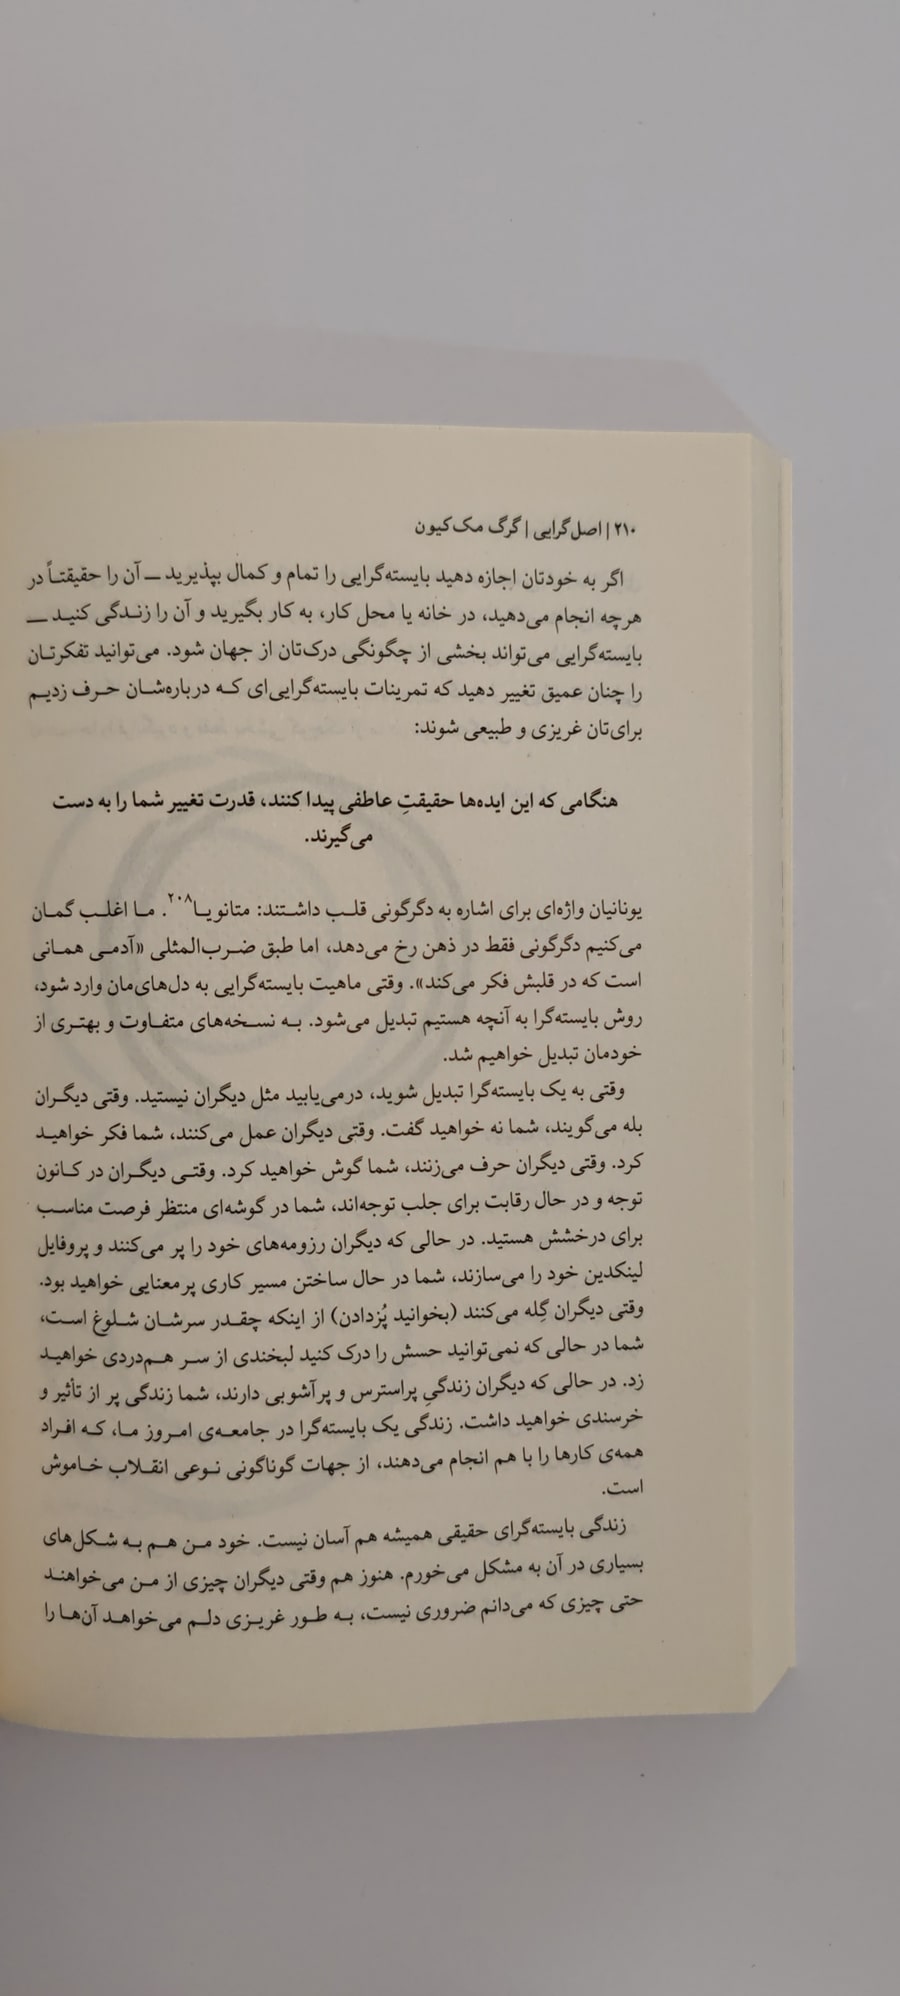 ۲۱۰ | اصل‌گرایی | گرگ مک‌کیون
اگر به خودتان اجازه دهید بایسته‌گرایی را تمام و کمال بپذیرید ـــ آن را حقیقتـاً در
هرچه انجام می‌دهید، در خانه یا محل کار، به کار بگیرید و آن را زنـدگی کنیـد ـــ
بایسته‌گرایی می‌تواند بخشی از چگونگی درک‌تان از جهان شود. می‌توانید تفکرتـان
را چنان عمیق تغییر دهید که تمرینات بایسته‌گرایی‌ای کـه درباره‌شـان حـرف زدیـم
برای‌تان غریزی و طبیعی شوند:
هنگامی که این ایده‌ها حقیقتِ عاطفی پیدا کنند، قدرت تغییر شما را به دست
می‌گیرند.
یونانیان واژه‌ای برای اشاره به دگرگونی قلـب داشـتند: متانویـا۲۰۸. مـا اغلـب گمـان
می‌کنیم دگرگونی فقط در ذهن رخ می‌دهد، اما طبق ضـرب‌المثلی «آدمـی همـانی
است که در قلبش فکر می‌کند». وقتی ماهیت بایسته‌گرایی به دل‌های‌مان وارد شود،
روش بایسته‌گرا به آنچه هستیم تبدیل می‌شود. بـه نسـخه‌های متفـاوت و بهتـری از
خودمان تبدیل خواهیم شد.
وقتی به یک بایسته‌گرا تبدیل شوید، درمی‌یابید مثل دیگران نیستید. وقتی دیگـران
بله می‌گویند، شما نه خواهید گفت. وقتی دیگران عمل می‌کنند، شما فکر خواهیـد
کرد. وقتی دیگران حرف می‌زنند، شما گوش خواهید کرد. وقتـی دیگـران در کـانون
توجه و در حال رقابت برای جلب توجه‌اند، شما در گوشه‌ای منتظر فرصت مناسـب
برای درخشش هستید. در حالی که دیگران رزومه‌های خود را پر می‌کنند و پروفایل
لینکدین خود را می‌سازند، شما در حال ساختن مسیر کاری پرمعنایی خواهید بود.
وقتی دیگران گِله می‌کنند (بخوانید پُزدادن) از اینکه چقـدر سرشـان شـلوغ اسـت،
شما در حالی که نمی‌توانید حسش را درک کنید لبخندی از سـر هـم‌دردی خواهیـد
زد. در حالی که دیگران زندگیِ پراسترس و پرآشوبی دارند، شما زندگی پر از تأثیر و
خرسندی خواهید داشت. زندگی یک بایسته‌گرا در جامعـه‌ی امـروز مـا، کـه افـراد
همه‌ی کارها را با هم انجام می‌دهند، از جهات گوناگونی نـوعی انقـلاب خـاموش
است.
زندگی بایسته‌گرای حقیقی همیشه هم آسان نیست. خود مـن هـم بـه شـکل‌های
بسیاری در آن به مشکل می‌خورم. هنوز هم وقتی دیگران چیزی از مـن می‌خواهنـد
حتی چیزی که می‌دانم ضروری نیست، بـه طـور غریـزی دلـم می‌خواهـد آن‌هـا را